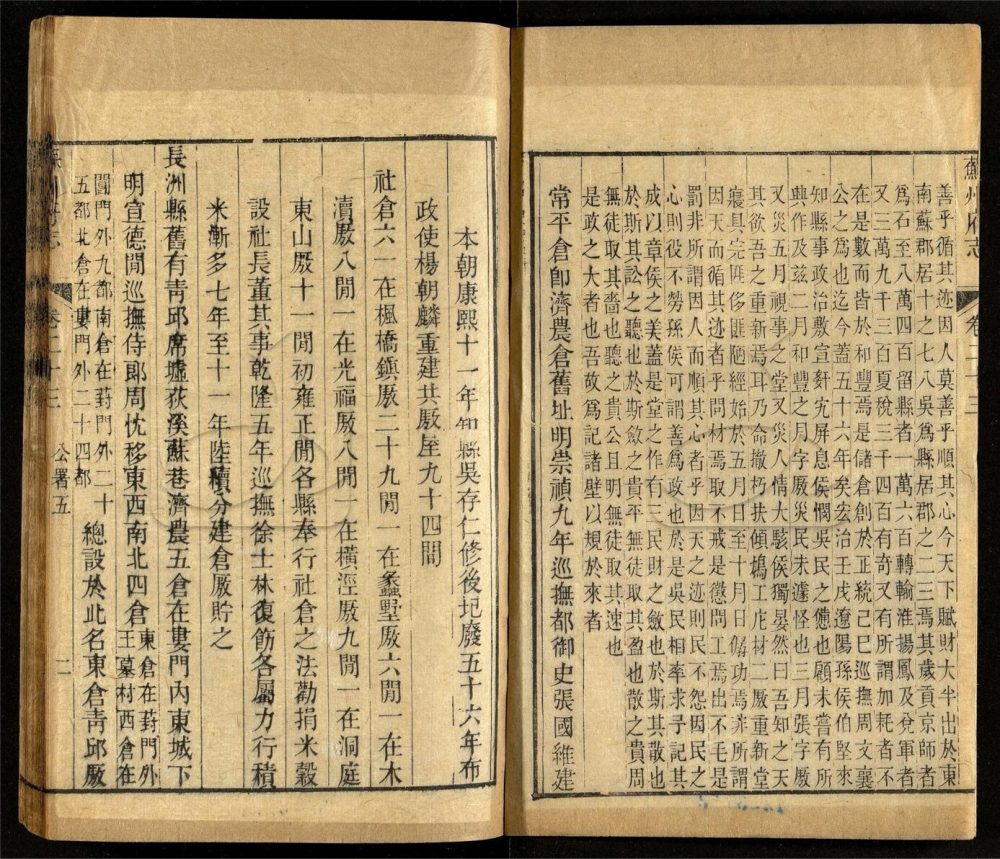 蘇州府志 卷二十三
善乎循其迹因人莫善乎順其心今天下賦財大半出於東
南蘇郡居十之七八吳爲縣居郡之二三焉其歲貢京師者
爲石至八萬四百留縣者一萬六百轉輸淮揚鳳及兌軍者
又三萬九千三百夏稅三千四百有奇又有所謂加耗者不
在是數而皆於和豐焉是儲倉創於正統己巳巡撫周文襄
公之爲也迄今蓋五十六年矣宏治壬戌遼陽孫侯伯堅來
知縣事政治敷宣姧宄屏息侯憫吳民之憊也顧未嘗有所
興作及茲二月和豐之月字厫災民未遽怪也三月張字厫
又災五月視事之堂又災人情大駭侯獨晏然曰吾知之天
其欲吾之重新焉耳乃命撤朽扶傾搗工庀材二厫重新堂
寢具完匪侈匪陋經始於五月日至十月日僝功焉非所謂
因天而循其迹者乎問材焉取不戒是懲問工焉出不毛是
罰非所謂因人而順其心者乎因天之迹則民不怨因民之
心則役不勞孫侯可謂善爲政也於是吳民相率求予記其
成以章侯之美蓋是堂之作有三民財之斂也於斯其散也
於斯其訟之聽也於斯斂之貴平無徒取其盈也散之貴周
無徒取其嗇也聽之貴公且明無徒取其速也
是政之大者也吾故爲記諸壁以規於來者
常平倉卽濟農倉舊址明崇禎九年巡撫都御史張國維建
本朝康熙十一年知縣吳存仁修後圮廢五十六年布
政使楊朝麟重建共厫屋九十四間
社倉六一在楓橋鎮厫二十九間一在蠡墅厫六間一在木
瀆厫八間一在光福厫八間一在橫涇厫九間一在洞庭
東山厫十一間初雍正間各縣奉行社倉之法勸捐米穀
設社長董其事乾隆五年巡撫徐士林復飭各屬力行積
米漸多七年至十一年陸續分建倉厫貯之
長洲縣舊有靑邱席墟荻溪蘇巷濟農五倉在婁門內東城下
明宣德間巡撫侍郞周忱移東西南北四倉
東倉在葑門外
王墓材西倉在
閶門外九都南倉在葑門外二十
五都北倉在婁門外二十四都
總設於此名東倉靑邱厫
府志 卷二十三 公署五 二